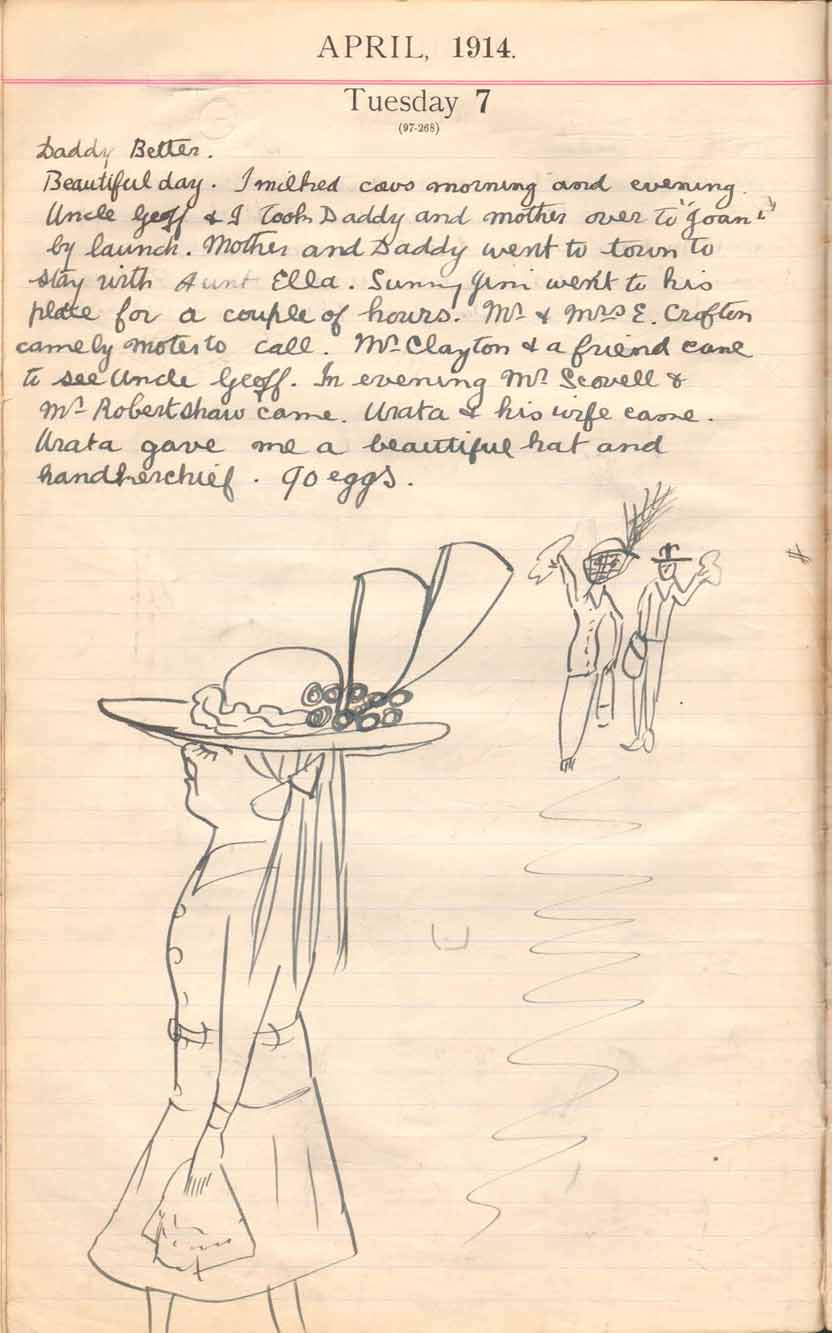 APRIL, 1914.
Tuesday 7
(97-268)
Daddy Better.
Beautiful day. I milked cows morning and evening.
Uncle Geoff & I took Daddy and mother over to "Joan"
by launch. Mother and Daddy went to town to
stay with Aunt Ella. Sunny Jim went to his
place for a couple of hours. Mr & Mrs E. Crofton
came by motor to call. Mr Clayton & a friend came
to see Uncle Geoff. In evening Mr Scovell &
Mr Robertshaw came. Urata & his wife came.
Urata gave me a beautiful hat and
handkerchief. 90 eggs.